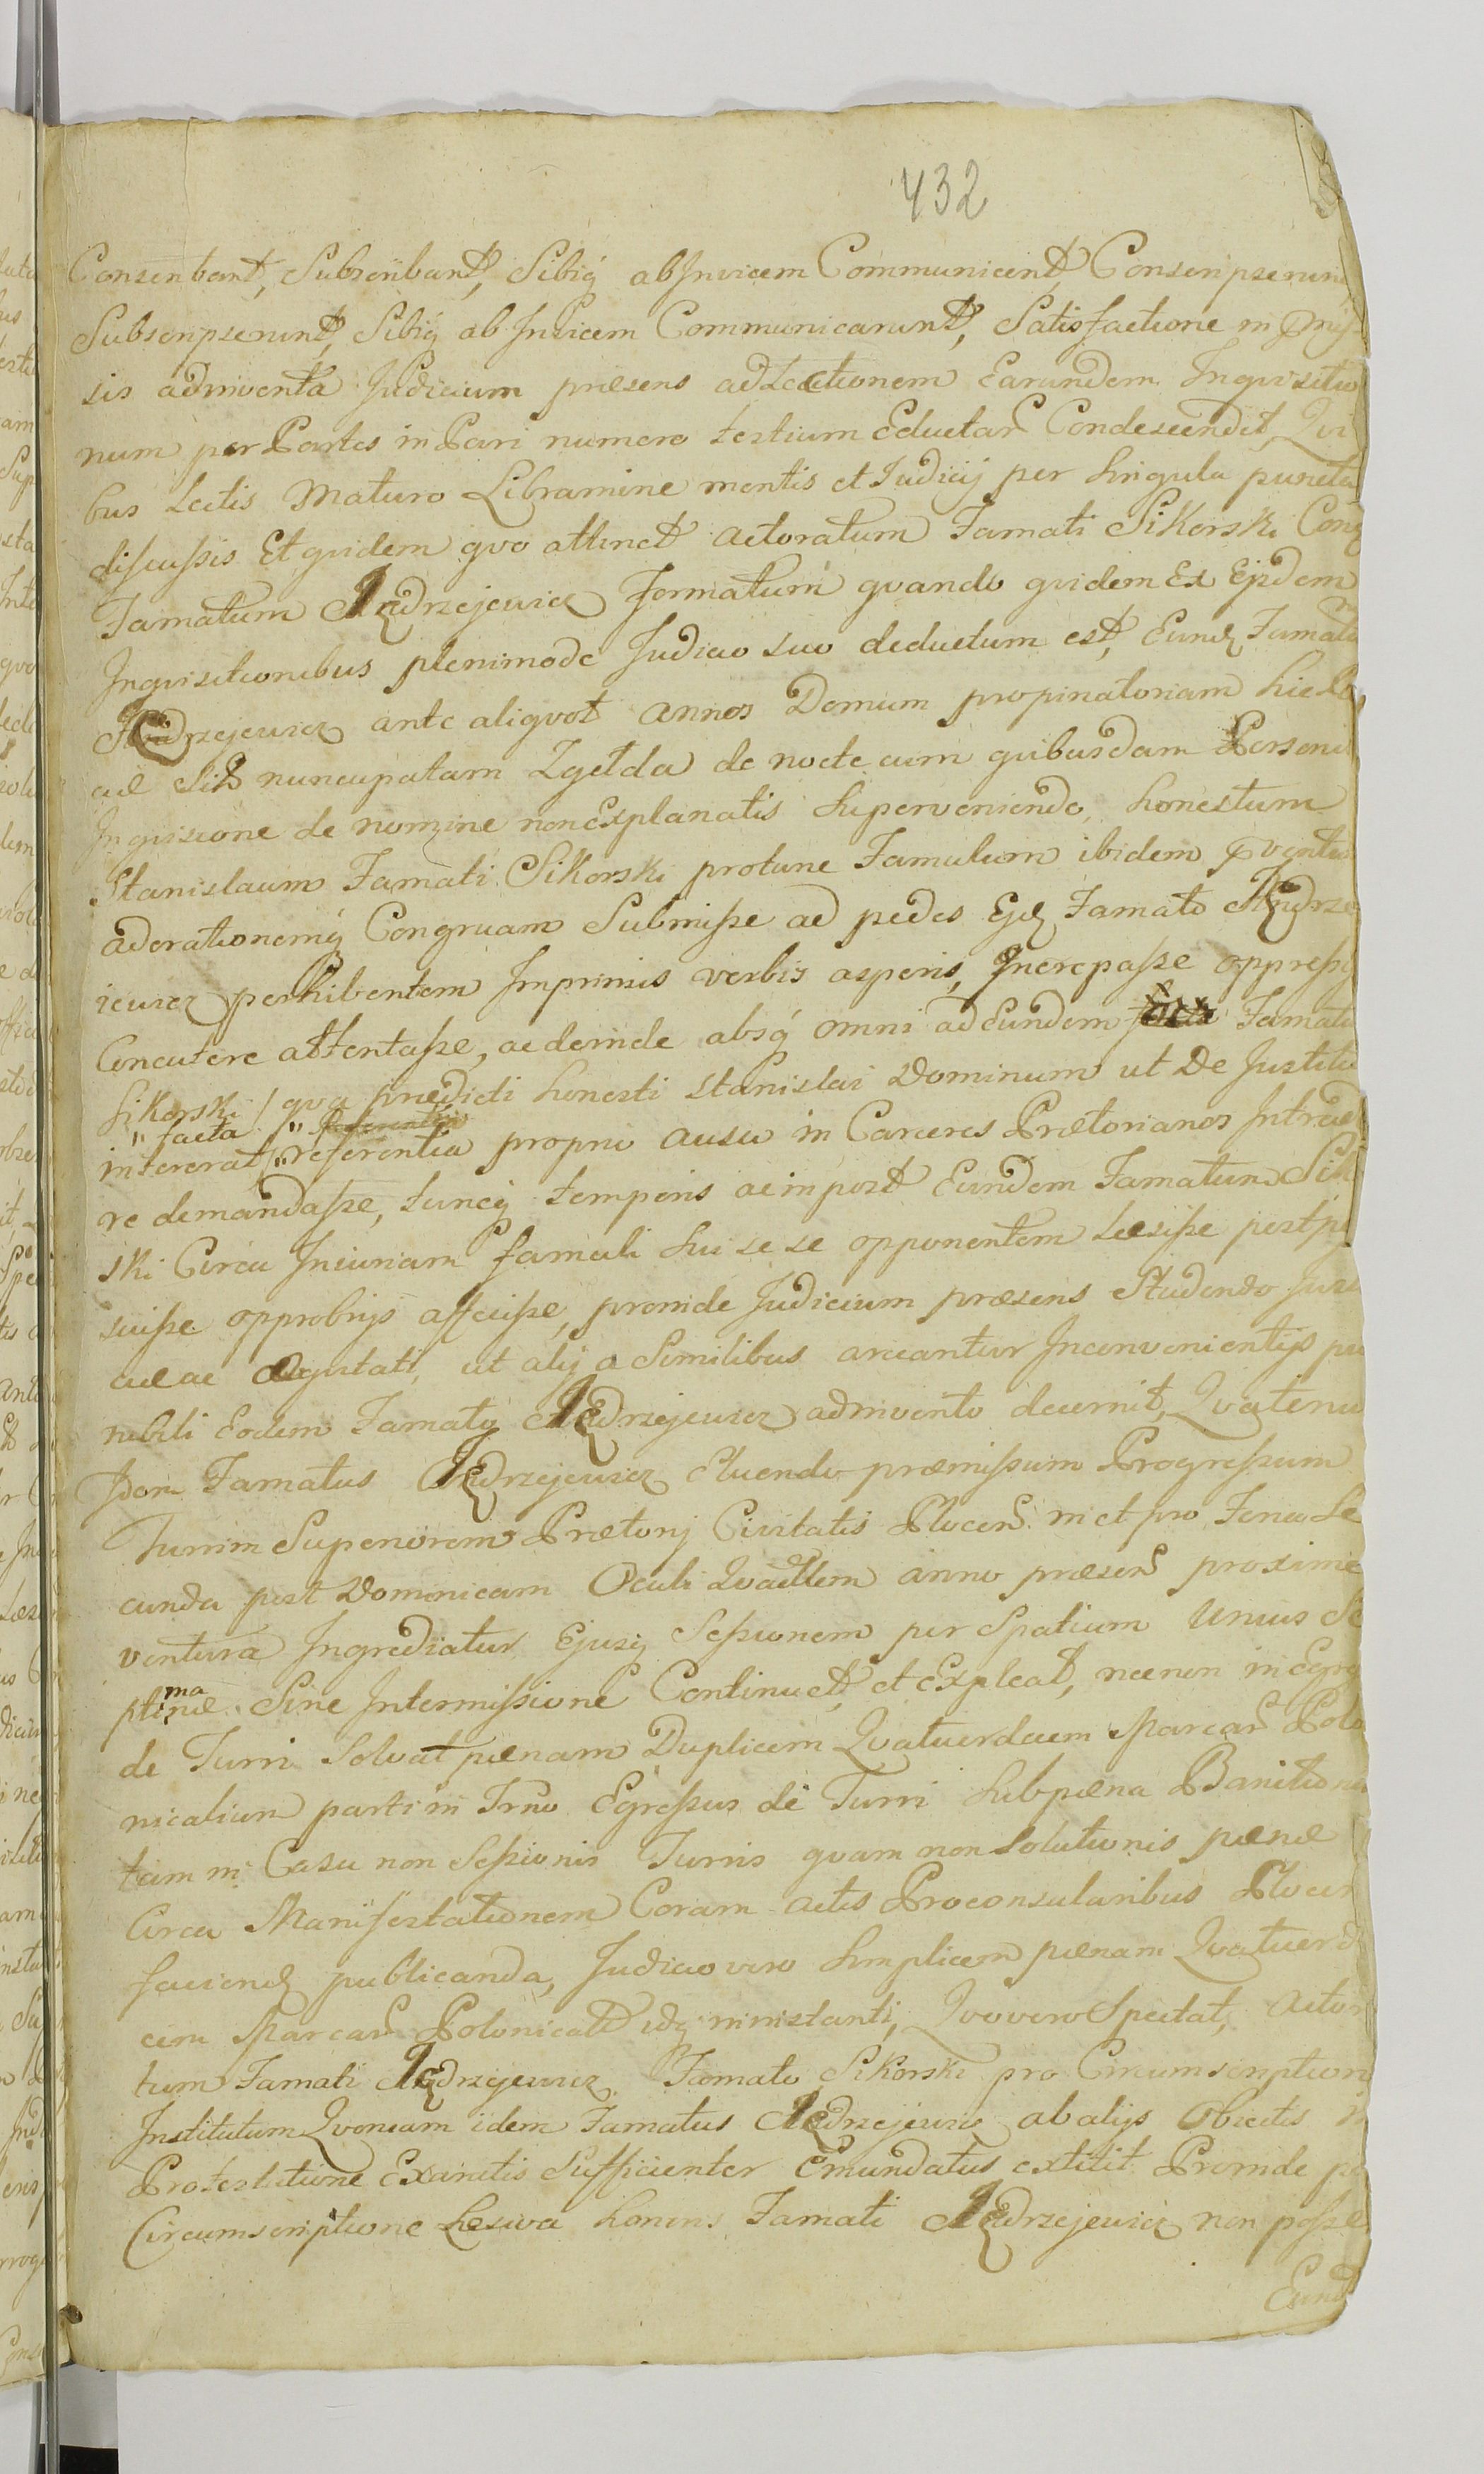 432
Conscribant, Subscribant, Sibiq ab Invicem Communicent, Conscripserunt,
Subscripserunt, Sibiq ab Invicem Communicarunt, Satisfactione in pmis
sis adinventa Judicium præsens ad Lectionem Earundem Inquisitio
num per Partes in Pari numero testium Eductar Condescendit, Qui
bus Lectis Maturo Libramine mentis et Judicij per Singula puncta
discussis Et quidem quo attinet actoratum Famati Sikorski Con
Famatum Jędrzejewicz formatum quando quidem Ex Ejsdem
Inquisitionibus plenimode Judicio suo deductum est, Eund Famatu
Jędrzejewicz ante aliquot annos Domum propinatoriam hic
nuncupatam Zgełda de nocte cum quibusdam Personis
Inquisicione de nomine non Explanatis Superveniendo, honestum
Stanislaum Famati Sikorski protunc Famulum ibidem
adorationemq Congruam Submisse ad pedes Ejd Famato Jędrze
iewicz perhibentem Imprimis verbis asperis, Increpasse oppress
Concutere attentasse, ac deinde absq omni ad Eundem Famatu
Sikorski / qua prædicti honesti Stanislai Dominum ut De Justitia
" facta "
intererat / " referentia proprio ausu in Carceres Prætorianos Intrude
re demandasse, tuncq temporis ac in post Eundem Famatum Sikor
ski Circa Iniuriam famuli Sui se se opponentem Læsisse
suisse opprobrijs affecisse, proinde Judicium præsens Studendo Justi
ciæ ac Æquitati, ut alij a Similibus arceantur Inconvenientijs pu
nibili Eodem Famato Jędrzejewicz adinvento decernit, Quatenus
Idem Famatus Jędrzejewicz Eluendo præmissum Progressum
Turrim Superiorem Prætorij Civitatis Plocen in et pro Feria Se
cunda post Dominicam Oculi Quadlem anno præsen proxime
ventura Ingrediatur, Ejusq Sessionem per Spatium Unius Se
ma
ptinæ Sine Intermissione Continuet, et Expleat, necnon in Egre
de Turri Solvat pænam Duplicem Quatuordecem Marcar Polo
nicalium parti in Trno Egressus de Turri Sub pæna Banitionis
tam in Casu non Sessionis Turris quam non Solutionis pænæ
Circa Manifestationem Coram actis Proconsularibus Plocen
faciend publicanda, Judicio vero Simplicem pænam Quatuord
cim Marcar Polonical idq ninistanti, Quo vero Spectat, actora
tum Famati Jędrzejewicz Famato Sikorski pro Circumscriptione
Institutum Quoniam idem Famatus Jędrzejewicz ab alijs Obiectis in
Protestatione Exanctis Sufficienter Emundatus extitit Proinde pro
Circumscriptione Læsiva honoris Famati Jędrzejewicz non posse
Eund